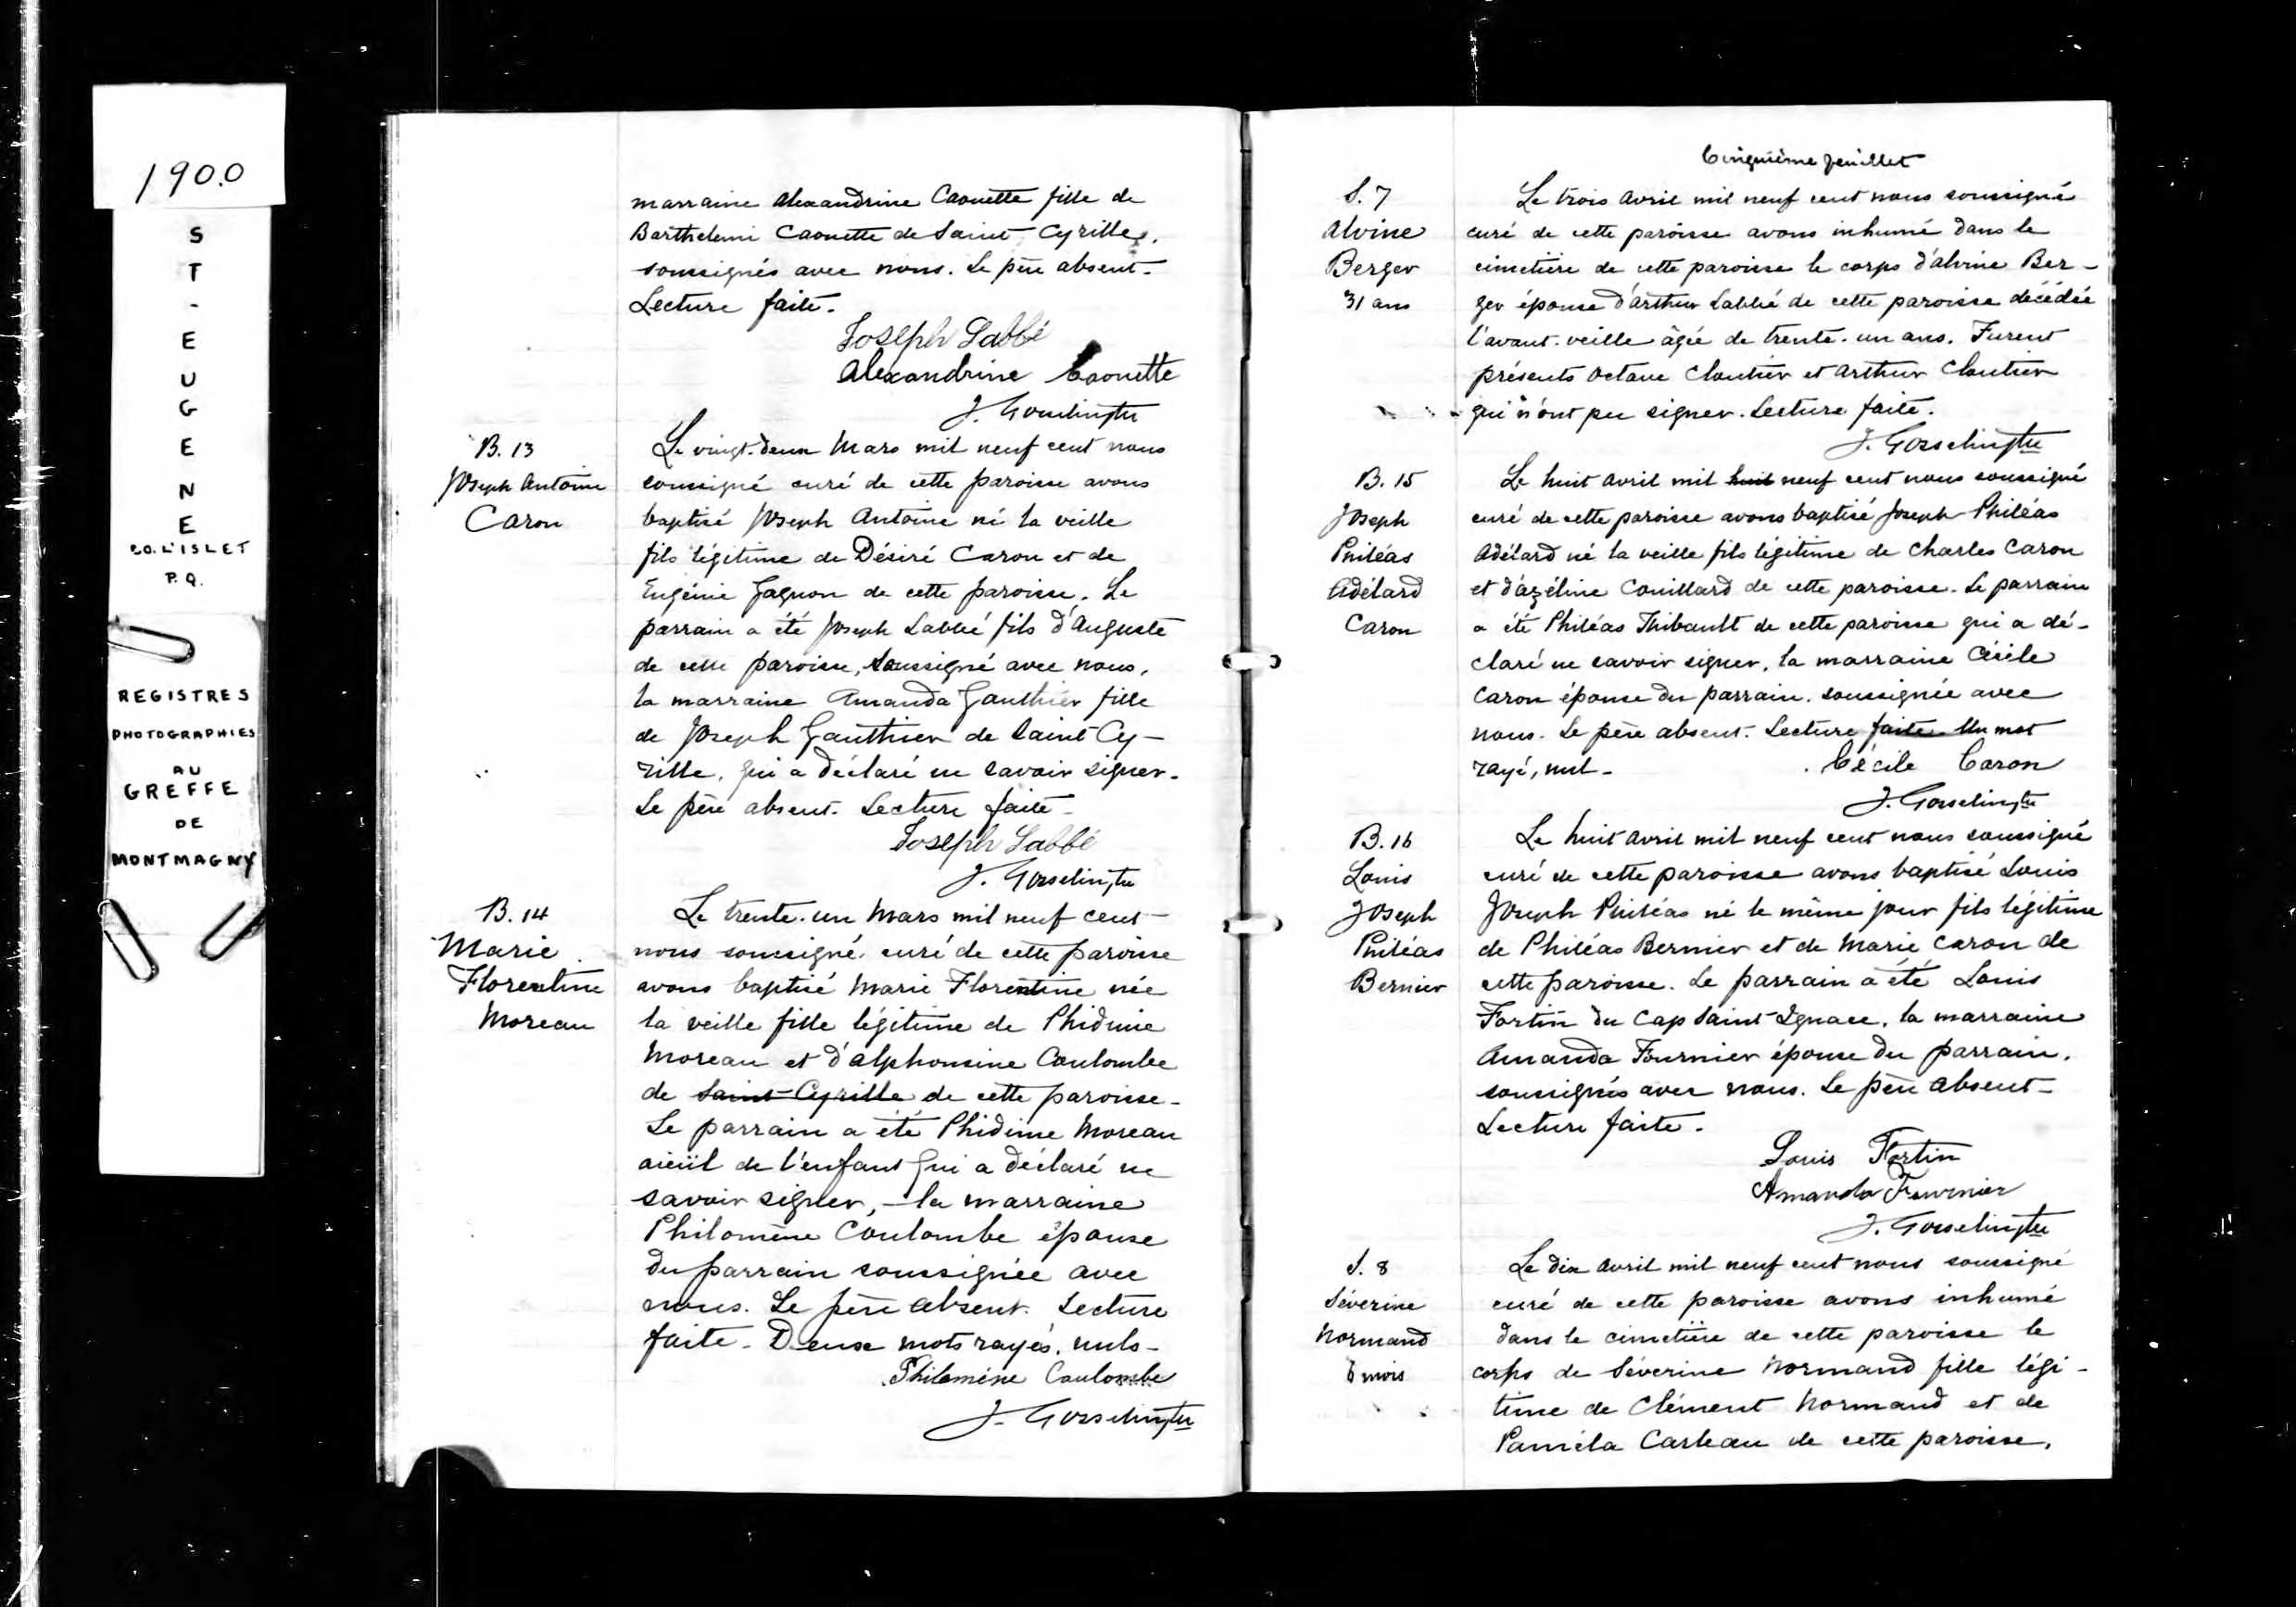 1900
S
T
-
E
U
G
E
N
E
CO. L'ISLET
P.Q.
REGISTRES
PHOTOGRAPHIES
AU
GREFFE
DE
MONTMAGNY
marraine Alexandrine Caouette fille de
Barthelemi Caouette de Saint Cyrille,
soussignés avec nous. Le père absent.
Lecture faite.
Joseph Labbé
Alexandrine Caouette
J. Gosselin ptre
B. 13
Joseph Antoine
Caron
Le vingt-deux Mars mil neuf cent nous
soussigné curé de cette paroisse avons
baptisé Joseph Antoine né la veille
fils légitime de Désiré Caron et de
Eugénie Gagnon de cette paroisse. Le
parrain a été Joseph Labbé fils d'Auguste
de cette paroisse, soussigné avec nous,
la marraine Amanda Gauthier fille
de Joseph Gauthier de Saint Cy-
rille, qui a déclaré ne savoir signer.
Le père absent. Lecture faite.
Joseph Labbé
J. Gosselin ptre
B. 14
Marie
Florentine
Moreau
Le trente-un Mars mil neuf cent
nous soussigné curé de cette paroisse
avons baptisé Marie Florentine née
la veille fille légitime de Phidime
Moreau et d'Alphonsine Coulombe
de Saint Cyrille de cette paroisse.
Le parrain a été Phidime Moreau
aïeul de l'enfant qui a déclaré ne
savoir signer, la marraine
Philomène Coulombe épouse
du parrain soussignée avec
nous. Le père absent. Lecture
faite. Deux mots rayés, nuls.
Philomène Coulombe
J. Gosselin ptre
Cinquième feuillet
S. 7
Alvine
Berger
31 ans
Le trois Avril mil neuf cent nous soussigné
curé de cette paroisse avons inhumé dans le
cimetière de cette paroisse le corps d'Alvine Ber-
ger épouse d'Arthur Labbé de cette paroisse décédée
l'avant-veille âgée de trente-un ans. Furent
présents Octave Cloutier et Arthur Cloutier
qui n'ont pu signer. Lecture faite.
J. Gosselin ptre
B. 15
Joseph
Philéas
Adélard
Caron
Le huit Avril mil huit neuf cent nous soussigné
curé de cette paroisse avons baptisé Joseph Philéas
Adélard né la veille fils légitime de Charles Caron
et d'Azéline Couillard de cette paroisse. Le parrain
a été Philéas Thibault de cette paroisse qui a dé-
claré ne savoir signer, la marraine Cécile
Caron épouse du parrain, soussignée avec
nous. Le père absent. Lecture faite. Un mot
rayé, nul.
Cécile Caron
J. Gosselin ptre
B. 16
Louis
Joseph
Philéas
Bernier
Le huit Avril mil neuf cent nous soussigné
curé de cette paroisse avons baptisé Louis
Joseph Philéas né le même jour fils légitime
de Philéas Bernier et de Marie Caron de
cette paroisse. Le parrain a été Louis
Fortin du Cap Saint Ignace, la marraine
Amanda Fournier épouse du parrain,
soussignés avec nous. Le père absent.
Lecture faite.
Louis Fortin
Amanda Fournier
J. Gosselin ptre
S. 8
Séverine
Normand
mois
Le dix Avril mil neuf cent nous soussigné
curé de cette paroisse avons inhumé
dans le cimetière de cette paroisse le
corps de Séverine Normand fille légi-
time de Clément Normand et de
Paméla Carbeau de cette paroisse,